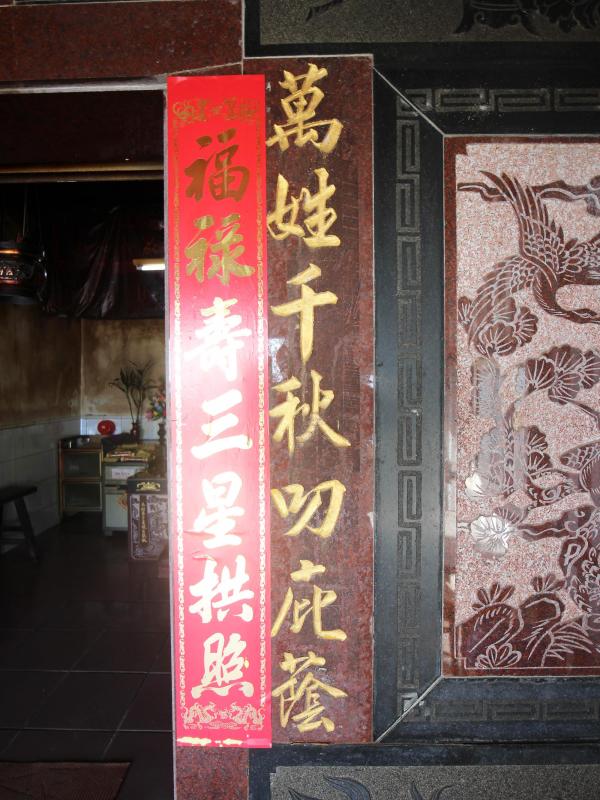 萬姓千秋叨庇蔭
福祿壽三星拱照